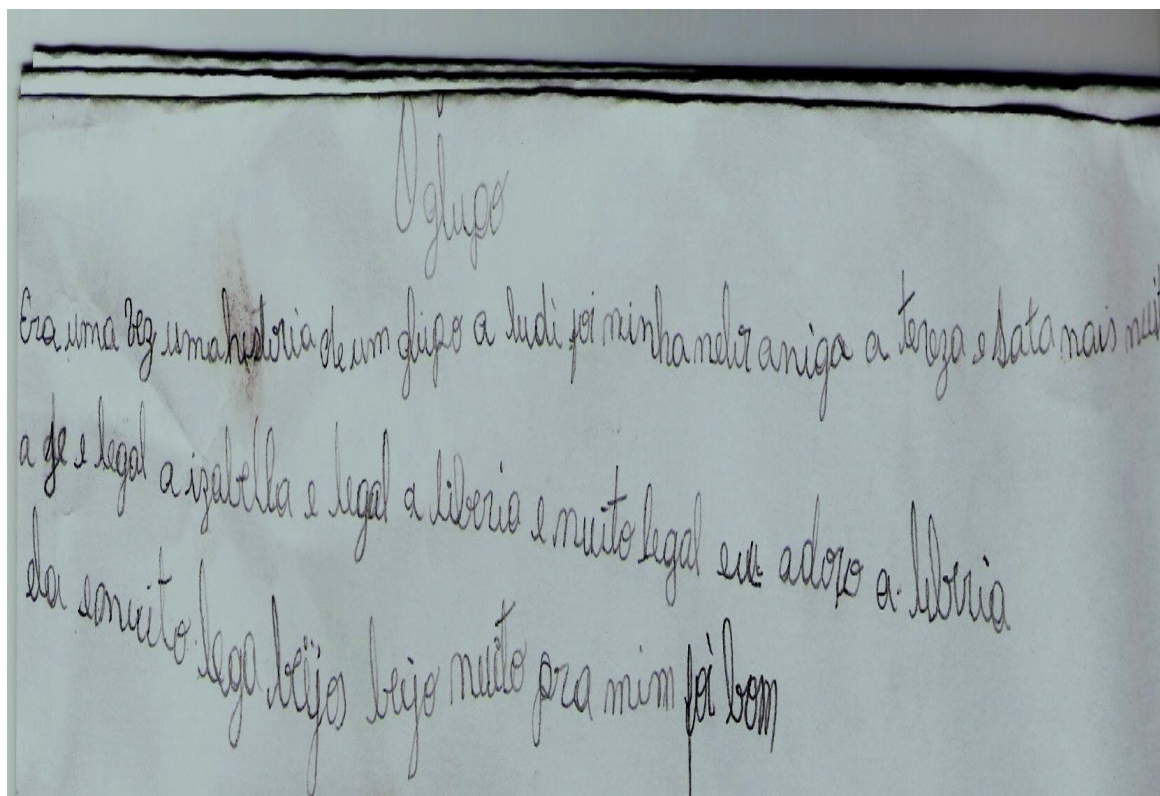 O glupo
Era uma vez uma historia de um glupo a ludi foi minha melir aniga a tereza e sata mais nuit
a fe e legal a izabella e legal a liberia e nuito legal eu adoro a liberia
ela e muito lega beijos beijo nuito pra mim foi bom